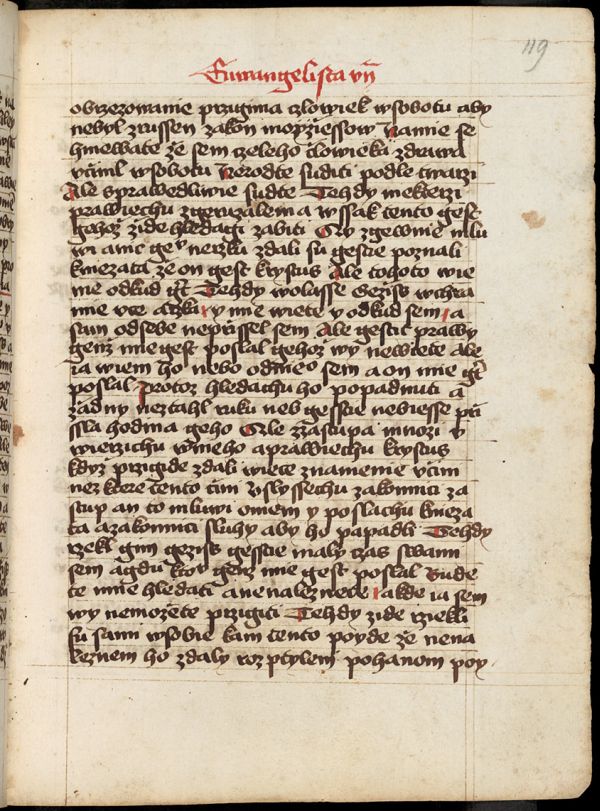 119
Ewangelista vii
obrzezowanie przigima czlowiek wsobotu aby
nebyl zrussen zakon moyziessow Namie se
hniewate že sem czeleho člowieka zdrawa
včinil wsobotu Nerodte suditi podle twarzi
Ale sprawedliwie sudte Tehdy niekterzi
prawiechu zgeruzalema wssak tento gest
gehož zide hledagi zabiti Ezy zgewnie mlu
wi anic geˀ nerzku zdali su gestie poznali
kniezata že on gest krystus Ale tohoto wie
me odkud gt Tehdy wolasse Gežiss wchra
mie vcze arzka y mie wiete y odkud sem a
sam odsebe neprissel sem Ale gestit prawy
genž mie gest poslal gehož wy newiete Ale
ia wiem ho nebo odnieˀ sem a on mie gt
poslal Protož hledachu ho popadnuti a
žadny neztahl ruku neb gesstie nebiesse pri
ssla hodina geho Ezle zzastupa mnozi v
wierzichu wnieho aprawiechu krystus
kdyz przigide zdali wiece znamenie včini
nez ktere tento čini Vslyssechu zakonnici za
stup an to mluwi oniem y poslachu knieza
ta azakonnici sluhy aby ho papadli Tehdy
rzekl gim geziss gesstie maly czas swami
sem agdu ktoˀ genz mie gest poslal Bude
te mie hledati anenaleznete akde ia sem
wy nemožete przigiti Tehdy zide rziekli
su sami wsobie kam tento poyde že nena
leznem ho zdaly rozptyleni pohanom poy